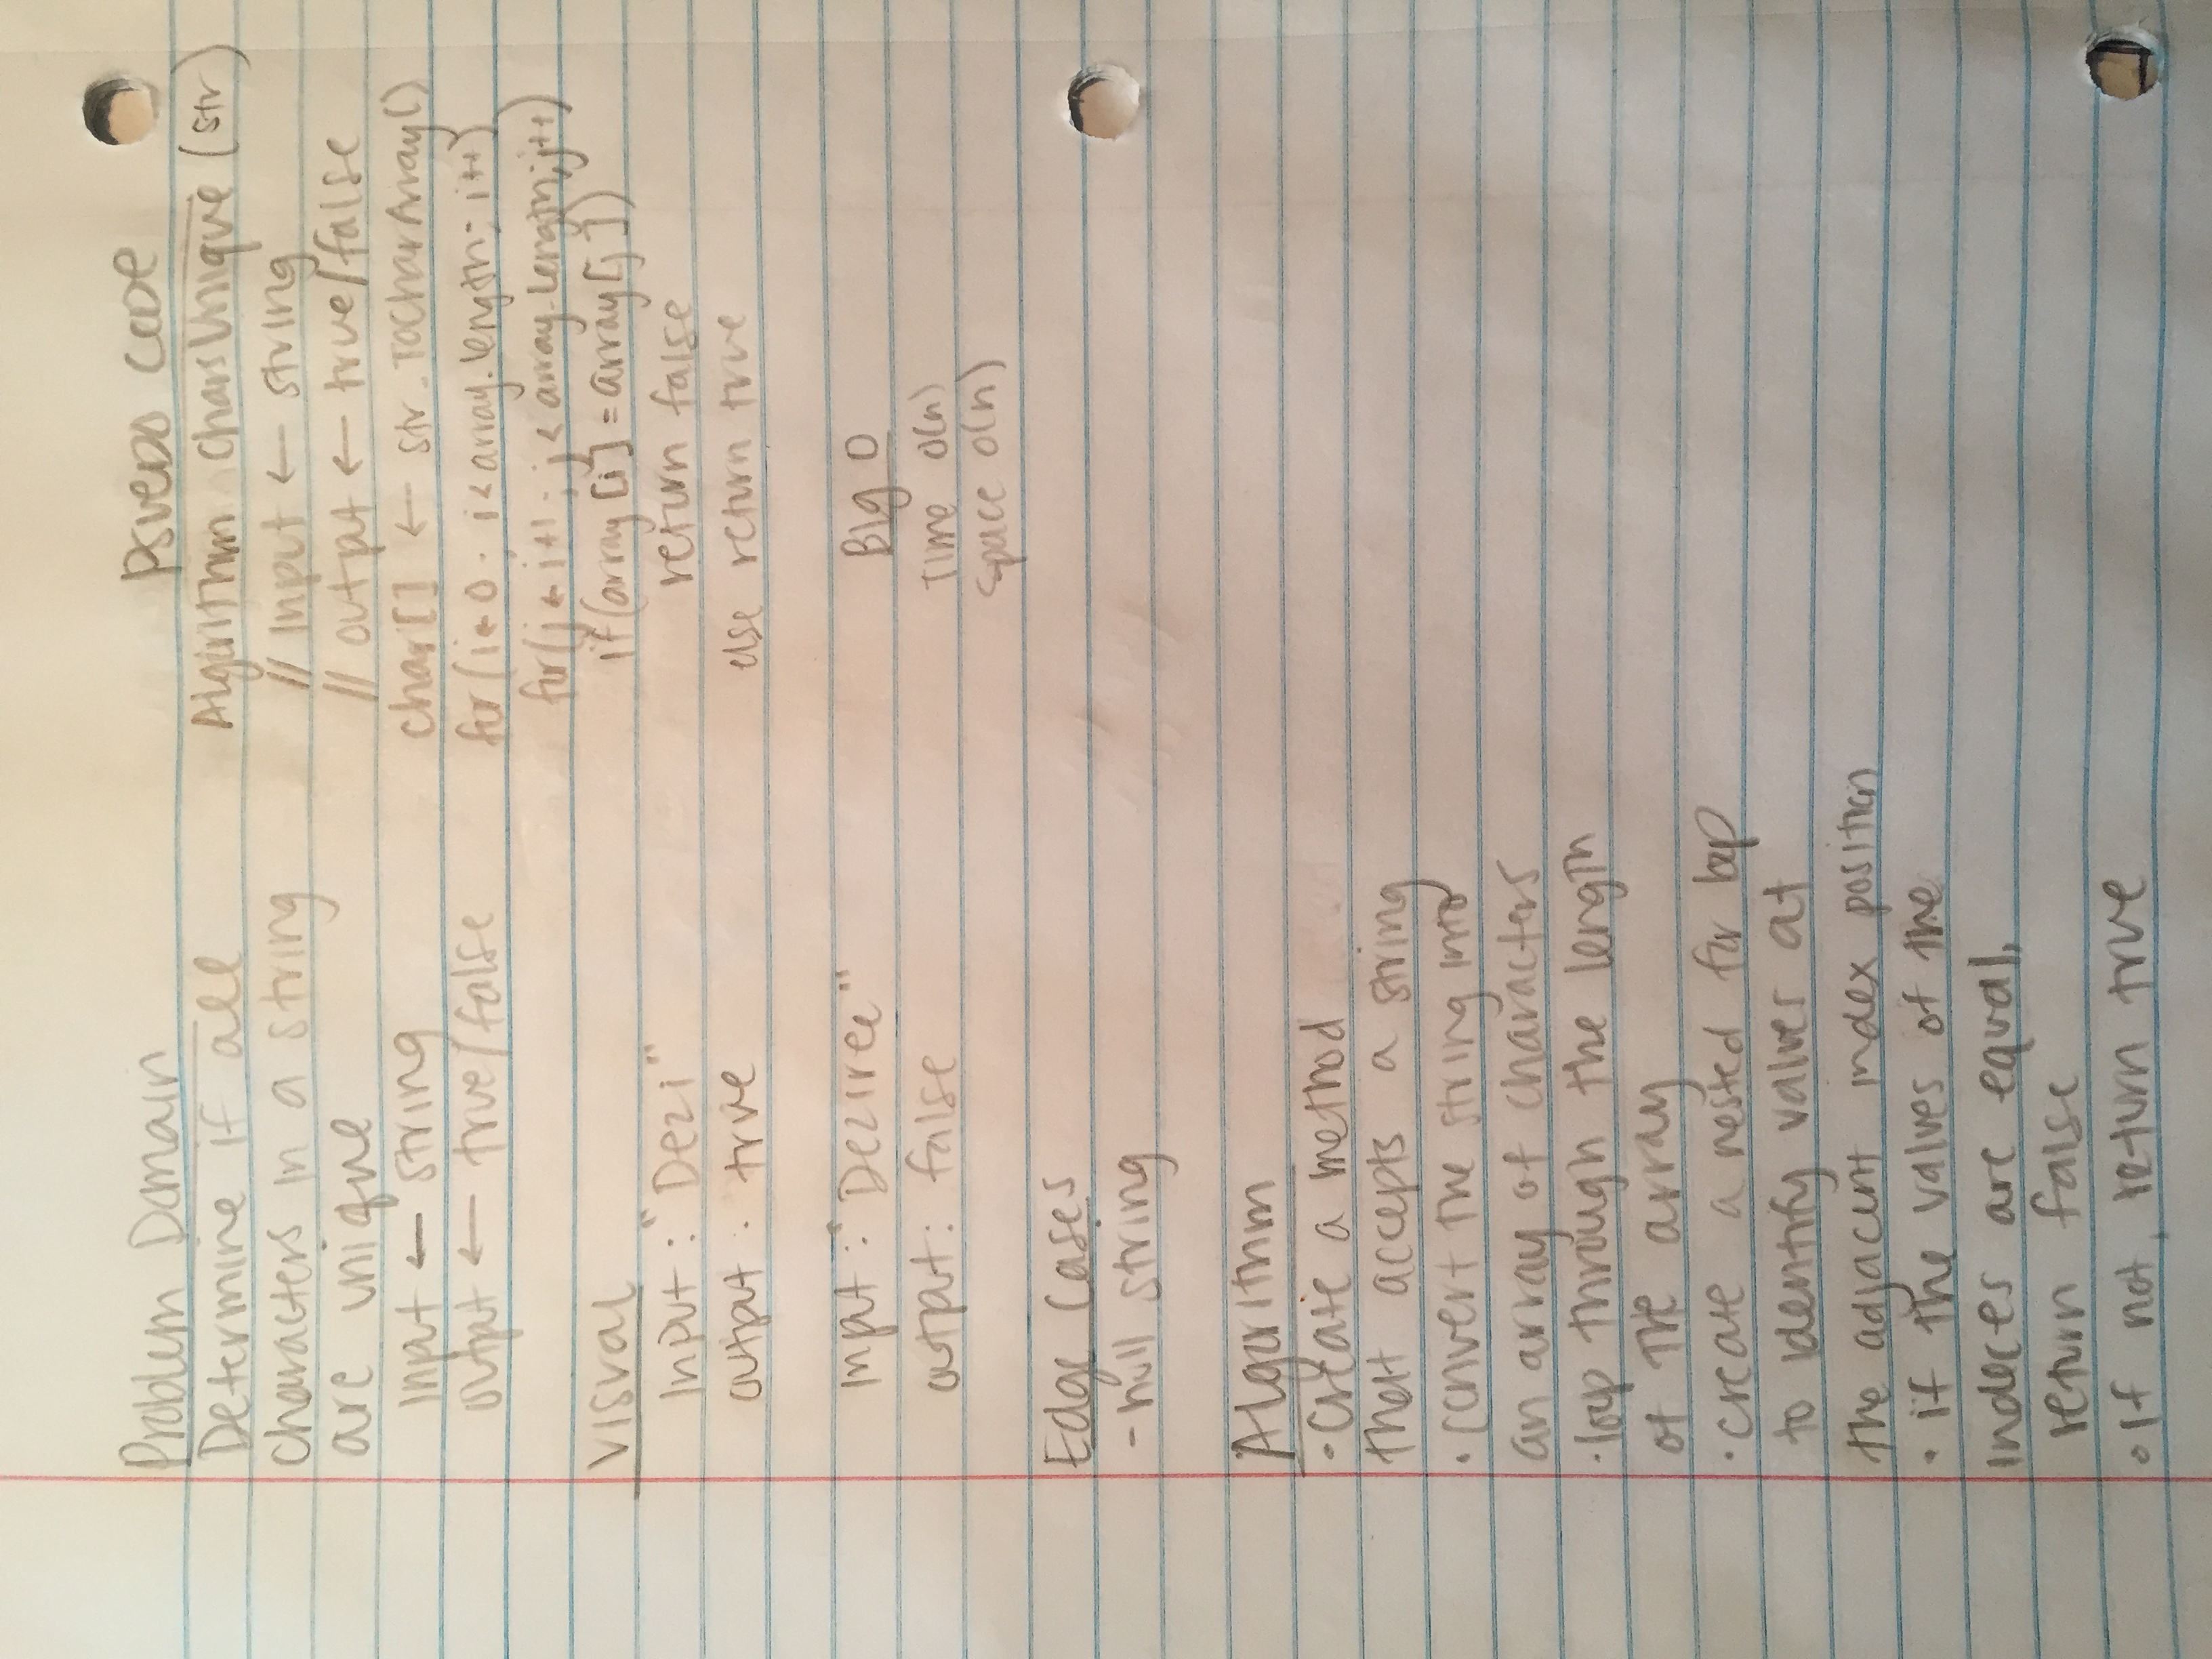 Problem Domain
Determine if all
characters in a string
are unique
Input ← string
output ← true/false
Visual
Input : "Dezi"
output : true
Input : "Deziree"
output : false
Edge Cases
- null string
Algorithm
- Create a method
that accepts a string
· convert the string into
an array of characters
· loop through the length
of the array
· create a nested for loop
to identify values at
the adjacent index position
· if the values of the
indeces are equal,
return false
· If not, return true
PSUEDO CODE
Algorithm CharsUnique (str)
// Input ← string
// output ← true/false
char[] ← str.ToCharArray()
for(i ← 0; i < array.length; i++)
for(j ← i+1; j < array.length; j++)
if(array[i] = array[j])
return false
else return true
Big O
Time O(n)
Space O(n)